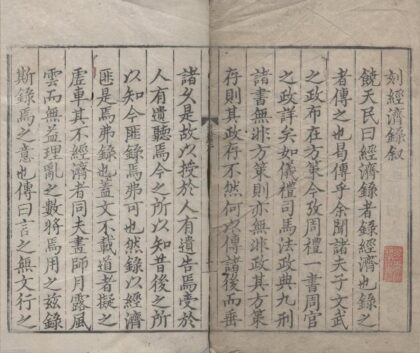 刻經濟錄叙
饒天民曰經濟錄者錄經濟也錄之
者傳之也曷傳乎余聞諸天子文武
之政布在方策今攷周禮一書周官
之政詳矣如儀禮司馬法政典九刑
諸書無非方策則亦無非政其方策
存則其政存不然何以傳諸後而垂
諸久是故以按於人有遺告焉索於
人有遺聽焉今之所以知昔後之所
以知今匪錄焉弗可也然錄以經濟
匪是焉弗錄也蓋文不載道者擬之
虛車其不經濟者同夫畫師月露風
雲而無益理亂之數將焉用之玆錄
斯錄焉之意也傳曰言之無文行之